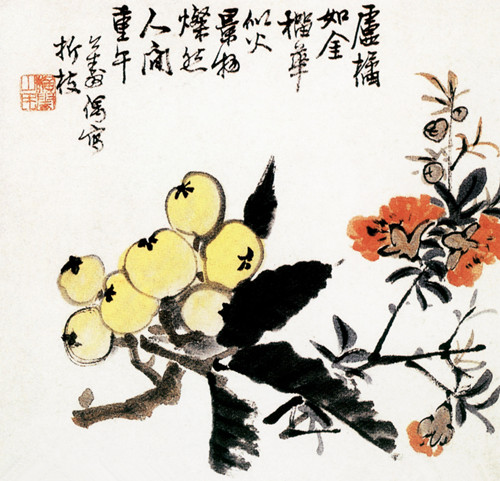 盧橘
如金
榴華
似火
景物
燦然
人間
重午
公壽偶寫
折枝